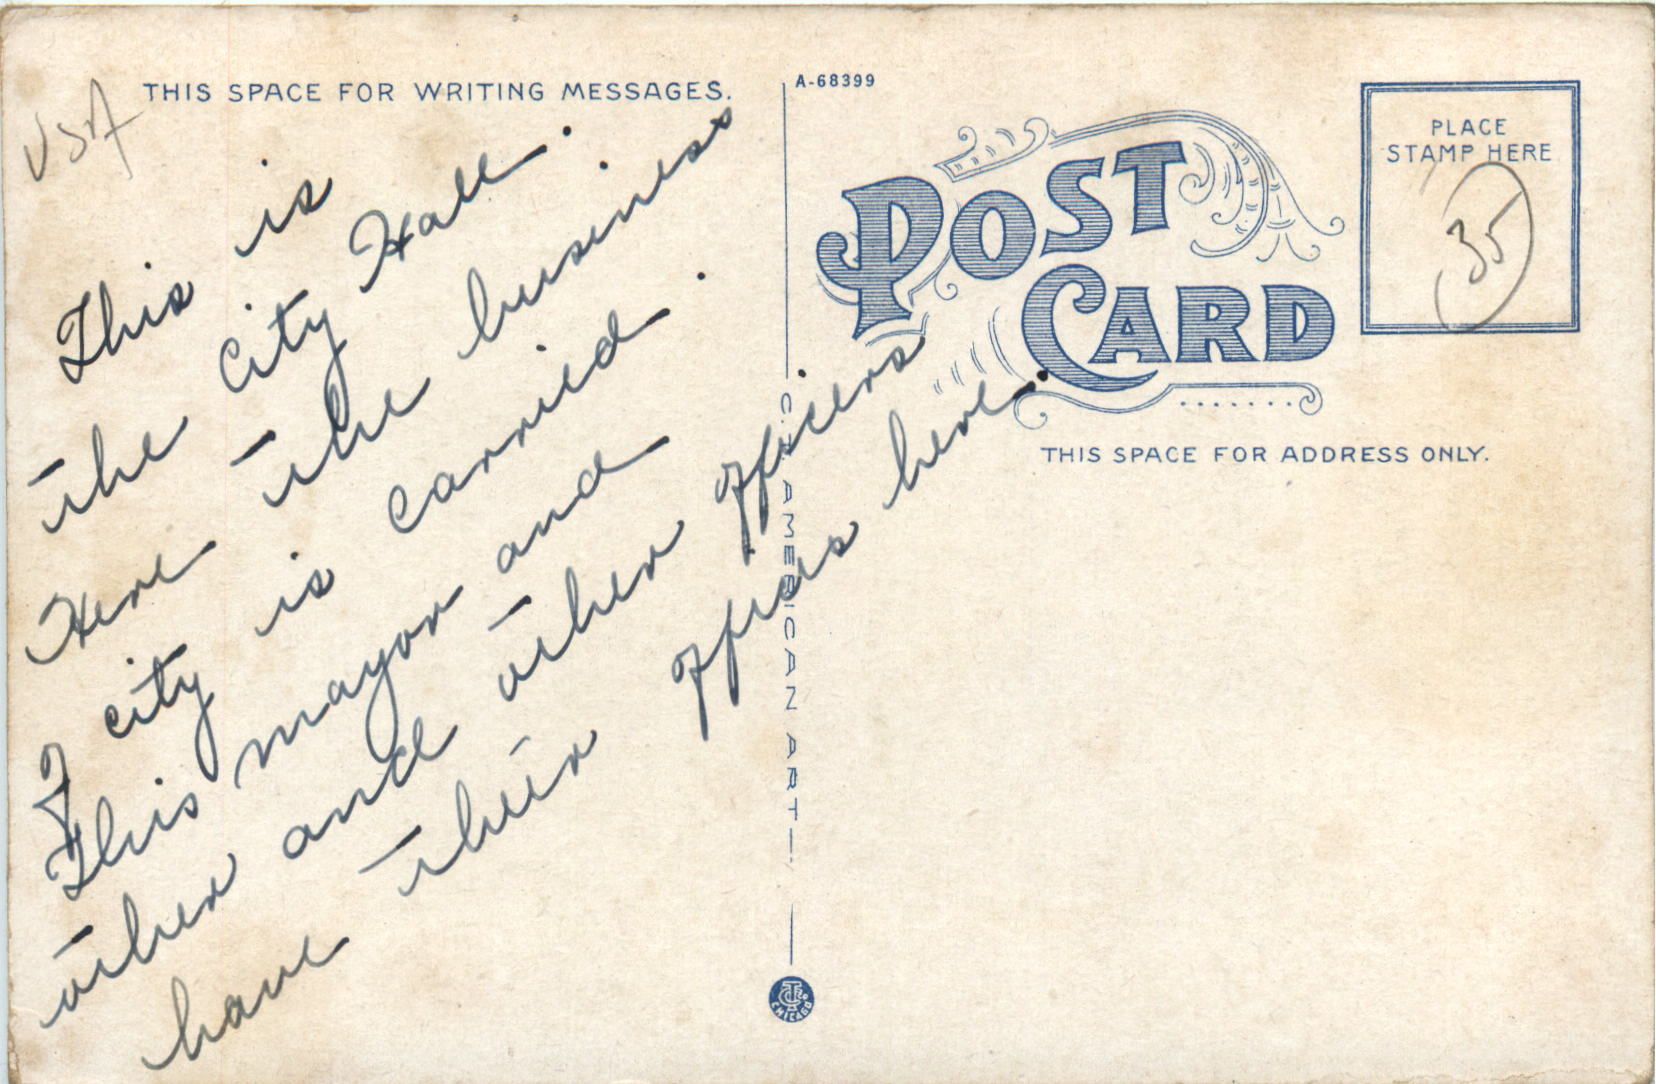 USA
THIS SPACE FOR WRITING MESSAGES.
This is
the City Hall.
Here the business
of city is carried.
This mayor and
other and other officers
have their offices here.
A-68399
POST
CARD
PLACE
STAMP HERE
35
THIS SPACE FOR ADDRESS ONLY.
C.T. AMERICAN ART
CHICAGO